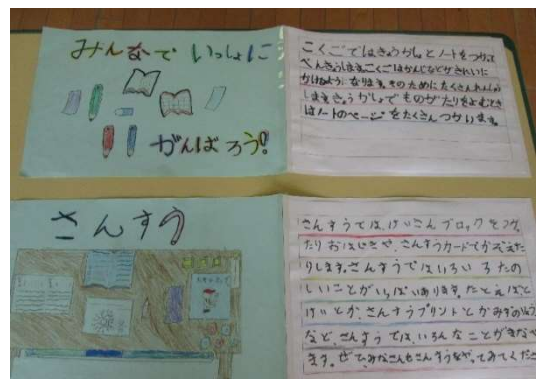 みんなで いっしょに
がんばろう!
こくごではきょうかしょとノートをつかって
べんきょうします。こくごはかんじなどがきれいに
かけるように なります。そのためにたくさんれんしゅう
します。きょうかしょでものがたりをよむとき
はノートのページをたくさんつかいます。
さんすう
さんすうでは、けいさんブロックをつかっ
たりおはじきや、さんすうカードでかぞえた
りします。さんすうではいろいろたの
しいことがいっぱいあります。たとえばと
けいとか、さんすうプリントとか
など、さんすうでは、いろんなことがまなべ
ます。ぜひみなさんもさんすうをやってみてくださ